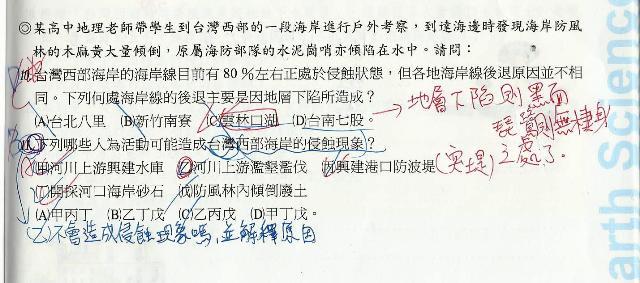 ◎某高中地理老師帶學生到台灣西部的一段海岸進行戶外考察，到達海邊時發現海岸防風
林的木麻黃大量傾倒，原屬海防部隊的水泥崗哨亦傾陷在水中。請問：
台灣西部海岸的海岸線目前有80％左右正處於侵蝕狀態，但各地海岸線後退原因並不相
同。下列何處海岸線的後退主要是因地層下陷所造成？
(A)台北八里 (B)新竹南寮 (C)雲林口湖 (D)台南七股。
→地層下陷則黑面
琵鷺則無棲身
之處了。
下列哪些人為活動可能造成台灣西部海岸的侵蝕現象？
(甲)河川上游興建水庫 (乙)河川上游濫墾濫伐 (丙)興建港口防波堤
(突堤)
(丁)開採河口海岸砂石 (戊)防風林內傾倒廢土
(A)甲丙丁 (B)乙丁戊 (C)乙丙戊 (D)甲丁戊。
(乙)不會造成侵蝕現象嗎，並解釋原因
arth Science